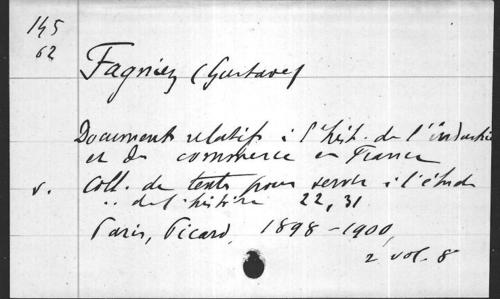 145
62
Fagniez (Gustave)
Documents relatifs à l'hist. de l'industrie
et du commerce en France
v. Coll. de textes pour servir à l'étude
.. de l'histoire 22, 31
Paris, Picard, 1898-1900,
2 vol. 8°